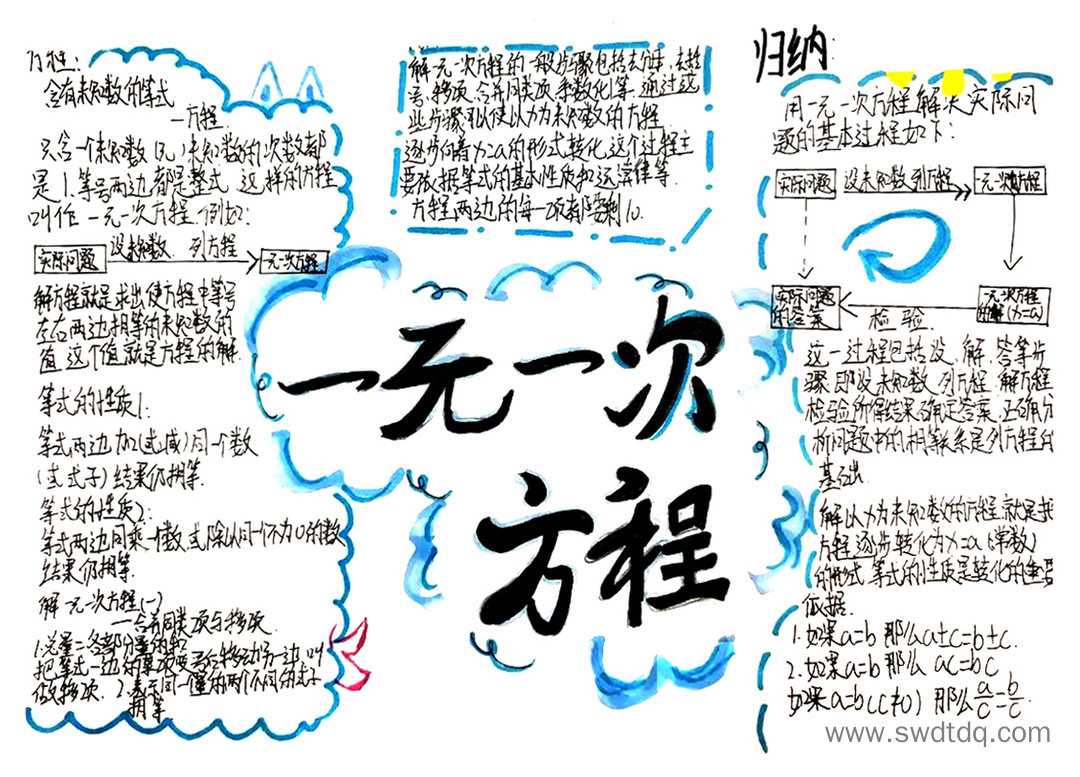 方程:
含有未知数的等式
一方程.
只含一个未知数(元)未知数的次数都
是1.等号两边都是整式 这样的方程
叫作 一元一次方程 例如:
实际问题 设未知数、列方程 一元一次方程
解方程就是求出使方程中等号
左右两边相等的未知数的
值 这个值就是方程的解.
等式的性质1:
等式两边加(或减)同一个数
(或式子)结果仍相等.
等式的性质2:
等式两边同乘一个数或除以同一个不为0的数
结果仍相等.
解一元一次方程(一)
一合并同类项与移项.
1.总量=各部分量的和
把等式一边的某项变号后移动另一边 叫
做移项. 2.表示同一量的两个不同的式子
相等
解一元一次方程的一般步骤包括去分母,去括
号,移项,合并同类项,系数化1等.通过这
些步骤可以使以x为未知数的方程
逐步向着x=a的形式转化,这个过程主
要依据等式的基本性质和运算律等.
方程两边的每一项都要乘10.
一元一次
方程
归纳:
用一元一次方程解决实际问
题的基本过程如下:
实际问题 设未知数列方程 一元一次方程
实际问题
的答案
检验.
一元一次方程
的解(x=a)
这一过程包括设、解、答等步
骤.即设未知数,列方程,解方程
检验所得结果,确定答案.正确分
析问题中的相等关系是列方程的
基础.
解以x为未知数的方程,就是把
方程逐步转化为x=a(常数)
的形式 等式的性质是转化的重要
依据.
1.如果a=b 那么a±c=b±c.
2.如果a=b 那么 ac=bc
如果a=b(c≠0) 那么a/c=b/c.
www.swdtdq.com